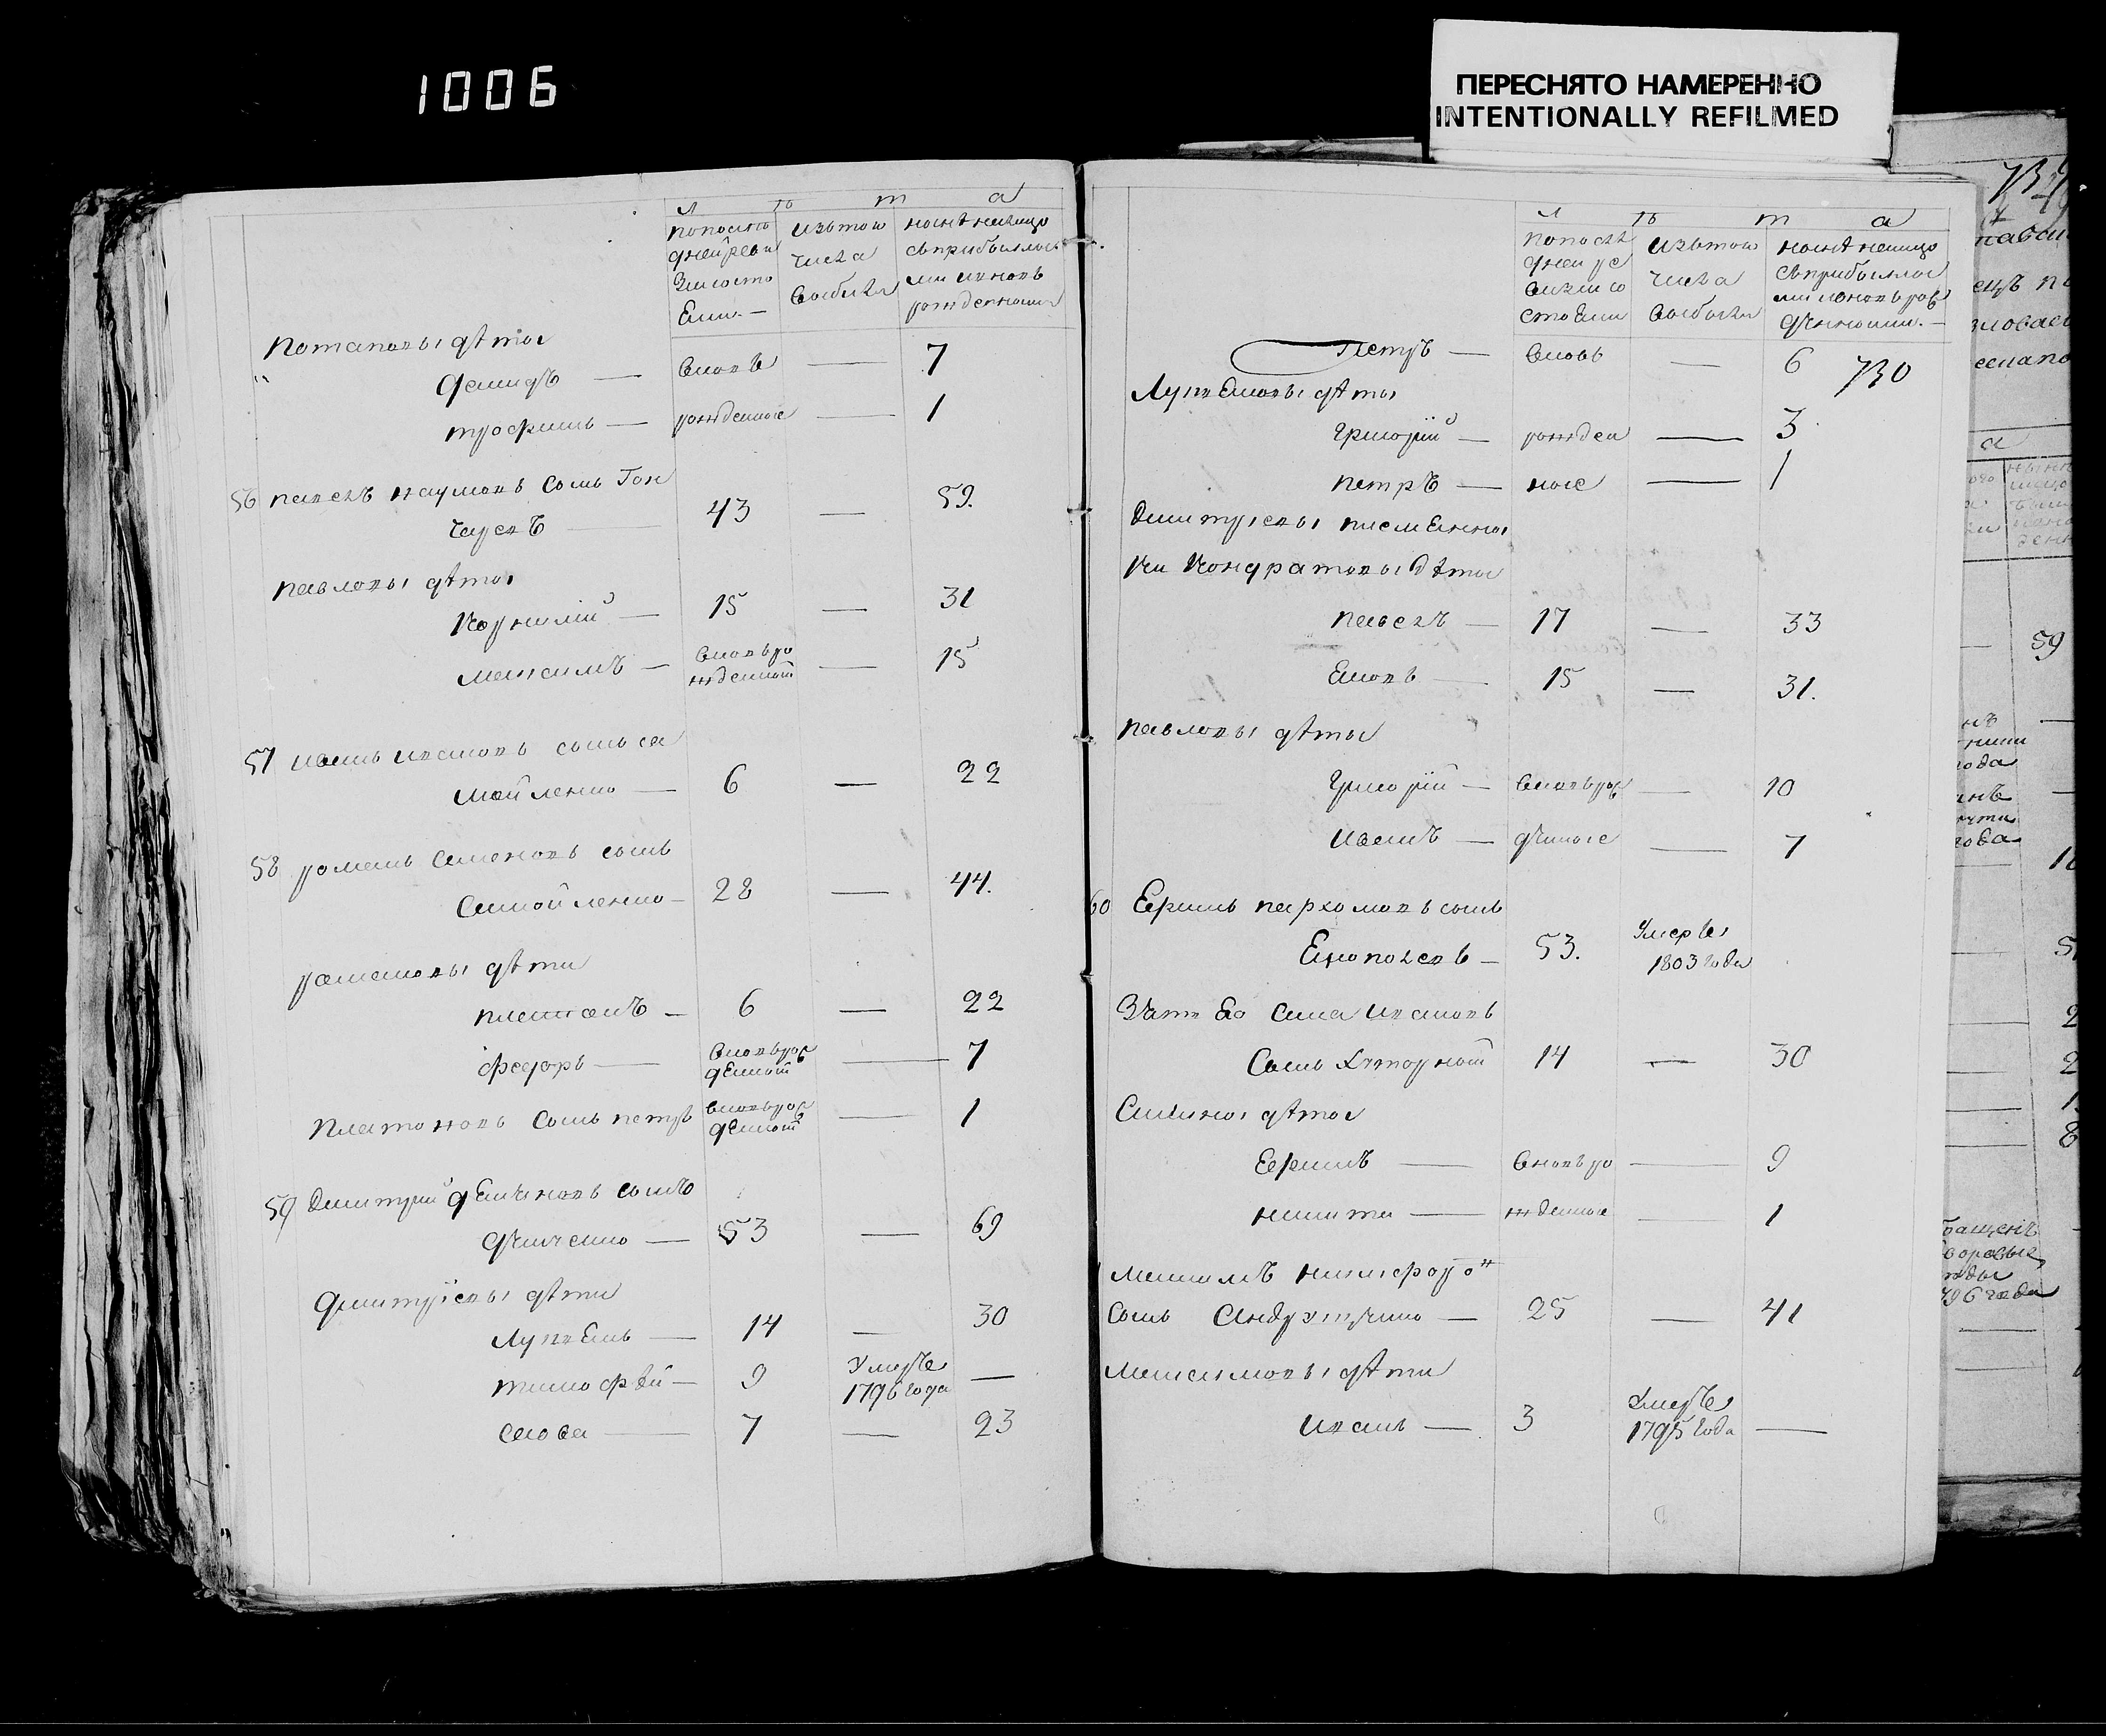 1006
ПЕРЕСНЯТО НАМЕРЕННО
INTENTIONALLY REFILMED
лѣта
по после
дней реви
зии состо
яли —
изъ того
числа
выбыли
нынѣ налицо
съ прибылы
ми и вновь
рожденными
Потаповы дѣти
Демидъ — вновь — 7
трофимъ — рожденные — 1
56 павелъ наумовъ сынъ Гон
чаревъ — 43 — 59.
павловы дѣти
Корнилій — 15 — 31
максимъ — вновь ро
жденный — 15
57 иванъ ивановъ сынъ са
мойленко — 6 — 22
58 романъ семеновъ сынъ
самойленко — 28 — 44.
романовы дѣти
платонъ — 6 — 22
федоръ — вновьрож
денный — 7
Платоновъ сынъ петръ вновьрож
денный — 1
59 Димитрий демяновъ сынъ
демченко — 53 — 69
Димитріевы дѣти
Лупянъ — 14 — 30
тимофѣй — 9 умре
1796 года —
савва — 7 — 23
лѣта
по послѣ
дней ре
визии со
стояли
изъ того
числа
выбыли
нынѣ налицо
съ прибылы
ми и вновь рож
денными. —
Петръ — вновь — 6
730
Лупяновы дѣти
григорій — рожден — 3
петръ — ные — 1
Димитріевы племянни
ки Кондратовы дѣти
павелъ — 17 — 33
Яковъ — 15 — 31.
павловы дѣти
григорій — вновьрож — 10
иванъ — денные — 7
60 Ефимъ пархомовъ сынъ
53. умре
1803 года
Зять Его сила ивановъ
сынъ — 14 — 30
Силины дѣти
Ефимъ — вновь ро — 9
никита — жденные — 1
максимъ никифоро"
сынъ Андрущенко — 25 — 41
максимовы дѣти
иванъ — 3 умре
1795 года —
59